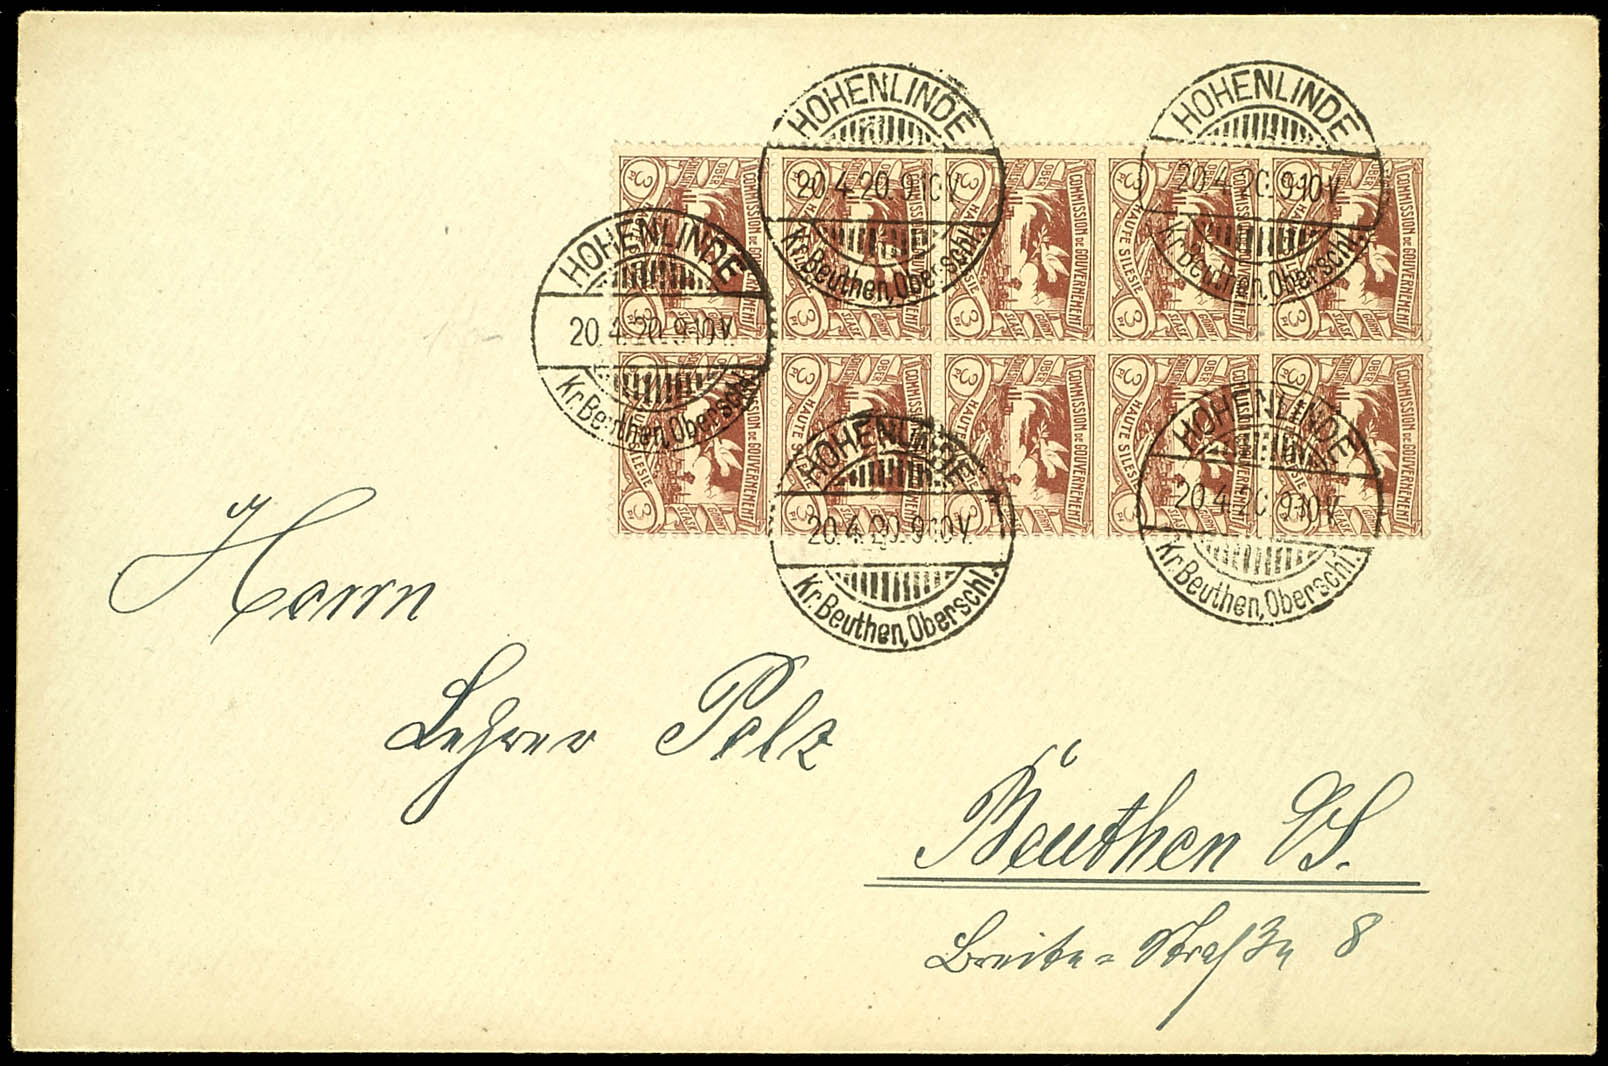 HOHENLINDE
20.4.20.9-10V.
Kr. Beuthen, Oberschl.
HOHENLINDE
20.4.20.9-10V.
Kr. Beuthen, Oberschl.
HOHENLINDE
20.4.20.9-10V.
Kr. Beuthen, Oberschl.
HOHENLINDE
20.4.20.9-10V.
Kr. Beuthen, Oberschl.
HOHENLINDE
20.4.20.9-10V.
Kr. Beuthen, Oberschl.
COMMISSION DE GOUVERNEMENT
HAUTE SILESIE
3
COMMISSION DE GOUVERNEMENT
HAUTE SILESIE
3
Herrn
Lehrer Pelz
Beuthen OS.
Breite-Straße 8